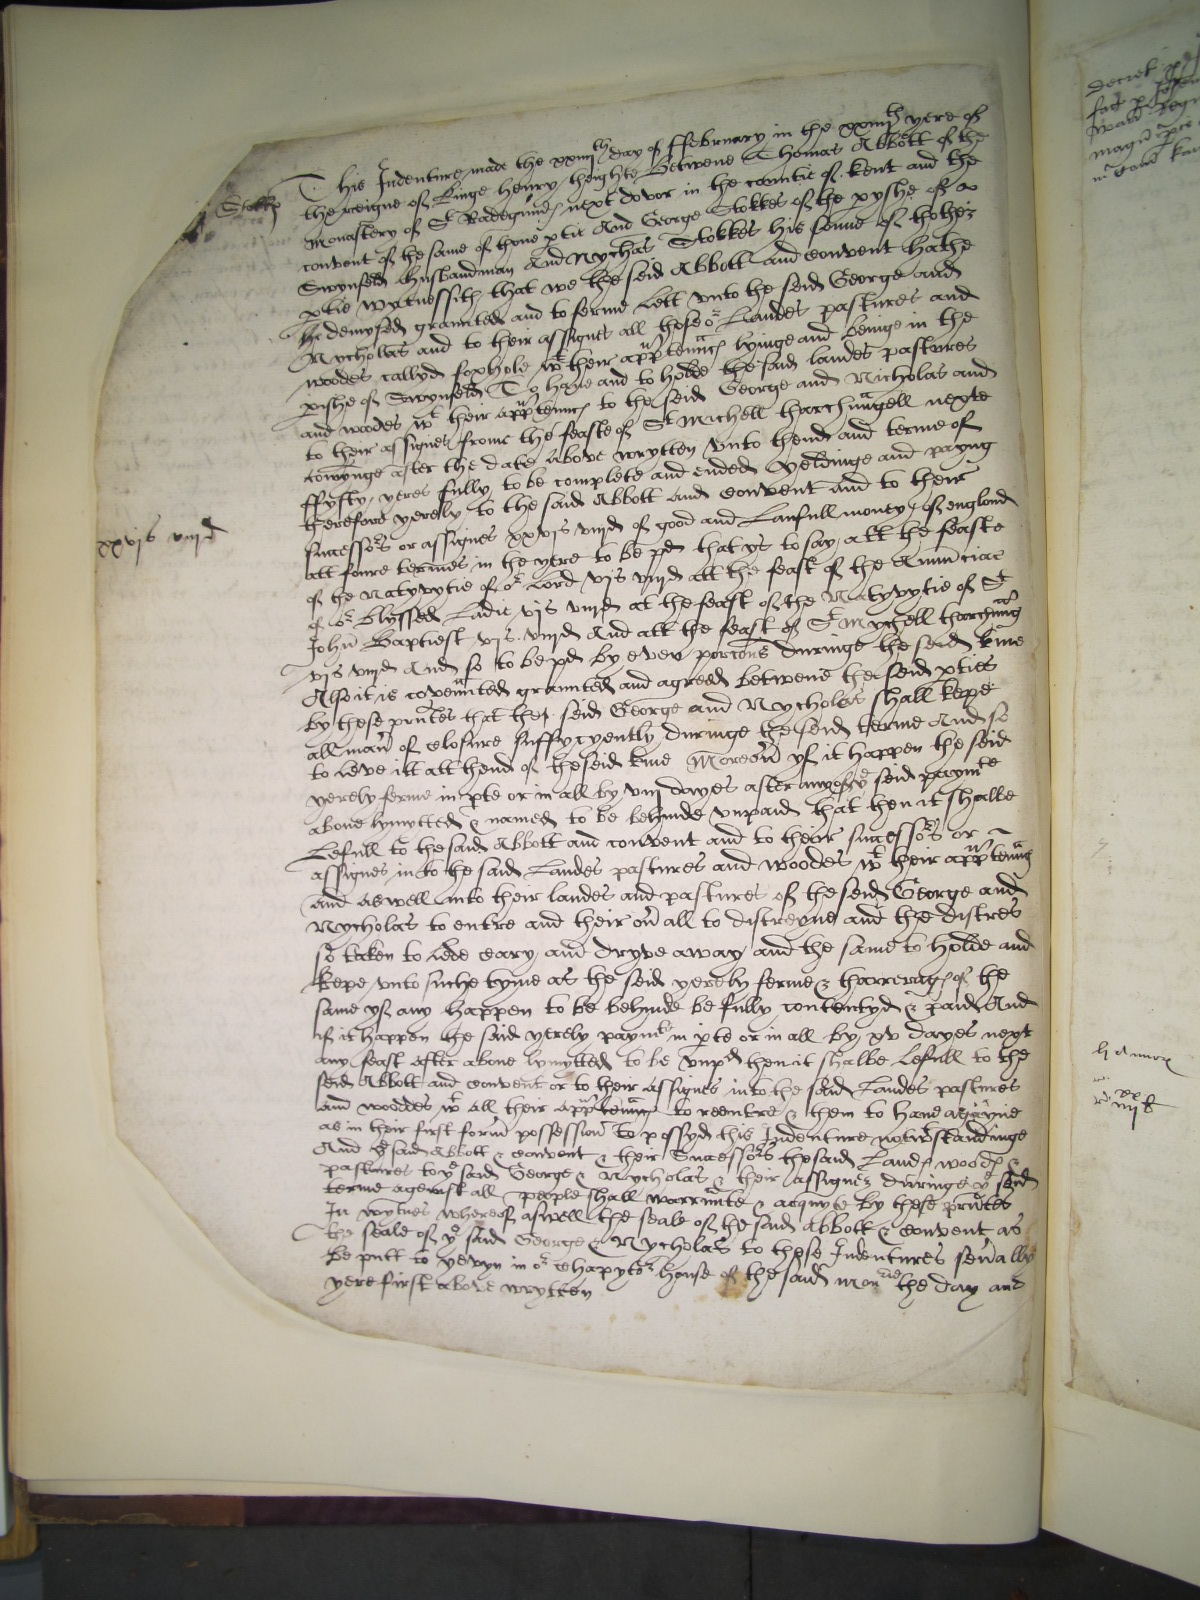 Stokks
This Indenture made the xxiiijth day of ffebruary in the xxiiijth yere of
the reigne of Kinge Henry theighte Betwene Thomas Abbott of the
Monastery of St Radegund next dovor in the countie of kent and the
convent of the same of thone ptie And George Stokkes of the pyshe of
Swynfeld husbandman And Nycholas Stokkes his sonne of thother
ptie wytnessith that we the seid Abbott and convent hathe
demysed graunted and to ferme Lett unto the seid George and
Nycholas and to their assignes all those or Landes pastures and
woodes callyd foxhole wt their apptennces lyinge and beinge in the
pishe of Swynfeld To have and to holde the said landes pastures
and woodes wt their apptennces to the seid George and Nicholas and
to their assignes frome the feaste of St Michell tharchungell nexte
comynge after the date above wrytten unto thend and terme of
ffyfty yeres fully to be complete and ended yeldinge and payng
therefore yerely to the said Abbott and convent and to their
xxvjs viijd
successors or assignes xxvjs viijd of good and Laufull money of englond
att foure termes in the yere to be pd that ys to say att the feaste
of the Natyvytie of or Lord vjs viijd att the feast of the Annuciac
of or Blyssed Ladie vjs viijd at the feast of the Natyvytie of St
John Baptiest vjs viijd And att the feast of St Mychell tharchung
vjs viijd And so to be pd by even porcons duringe the seid time
Also it is covennted graunted and agreed betwene the seid pties
by these pntes that the seid George and Nycholas shall kepe
all manr of closure suffycyently duringe the seid terme And so
to leve itt att thend of the seid time Moreovr yf it happen the seid
yerely ferme in pte or in all by viij dayes after seid paymte
above lymytted & named to be behinde unpaid that then it shalbe
Lefull to the said Abbott and convent and to their successors or
assignes into the said Landes pastures and woodes wt their apptennc
and aswell into their landes and pastures of the seid George and
Nycholas to entre and their ovr all to distreyne and the distres
so taken to lede cary and dryve away and the same to holde and
kepe unto suche tyme as the seid yerely ferme & tharrerages of the
same yf any happen to be behinde be fully contentyd & paid And
if it happen the said yerely paymt in pte or in all by xv dayes next
any feast after above lymytted to be unpd then it shalbe Lefull to the
seid Abbott and convent or to their assignes into the seid Landes pastures
and woodes wt all their apptennc to reentre & them to have agayne
as in their first formr possession to possyd this Indenture notwtstandinge
And ye said Abbott & convent & their Successors the said Landes woodes &
pastures to ye said George & Nycholas & their assignez duringe ye seid
terme agenst all people shall warrunte & acquyte by these prntes
In wytnes whereof aswell the seale of the said Abbott & convent as
the seale of ye said George & Nycholas to these Indentures sevally
be putt to yevyn in or Chapytor house of the said Mon the day and
yere first above wrytten